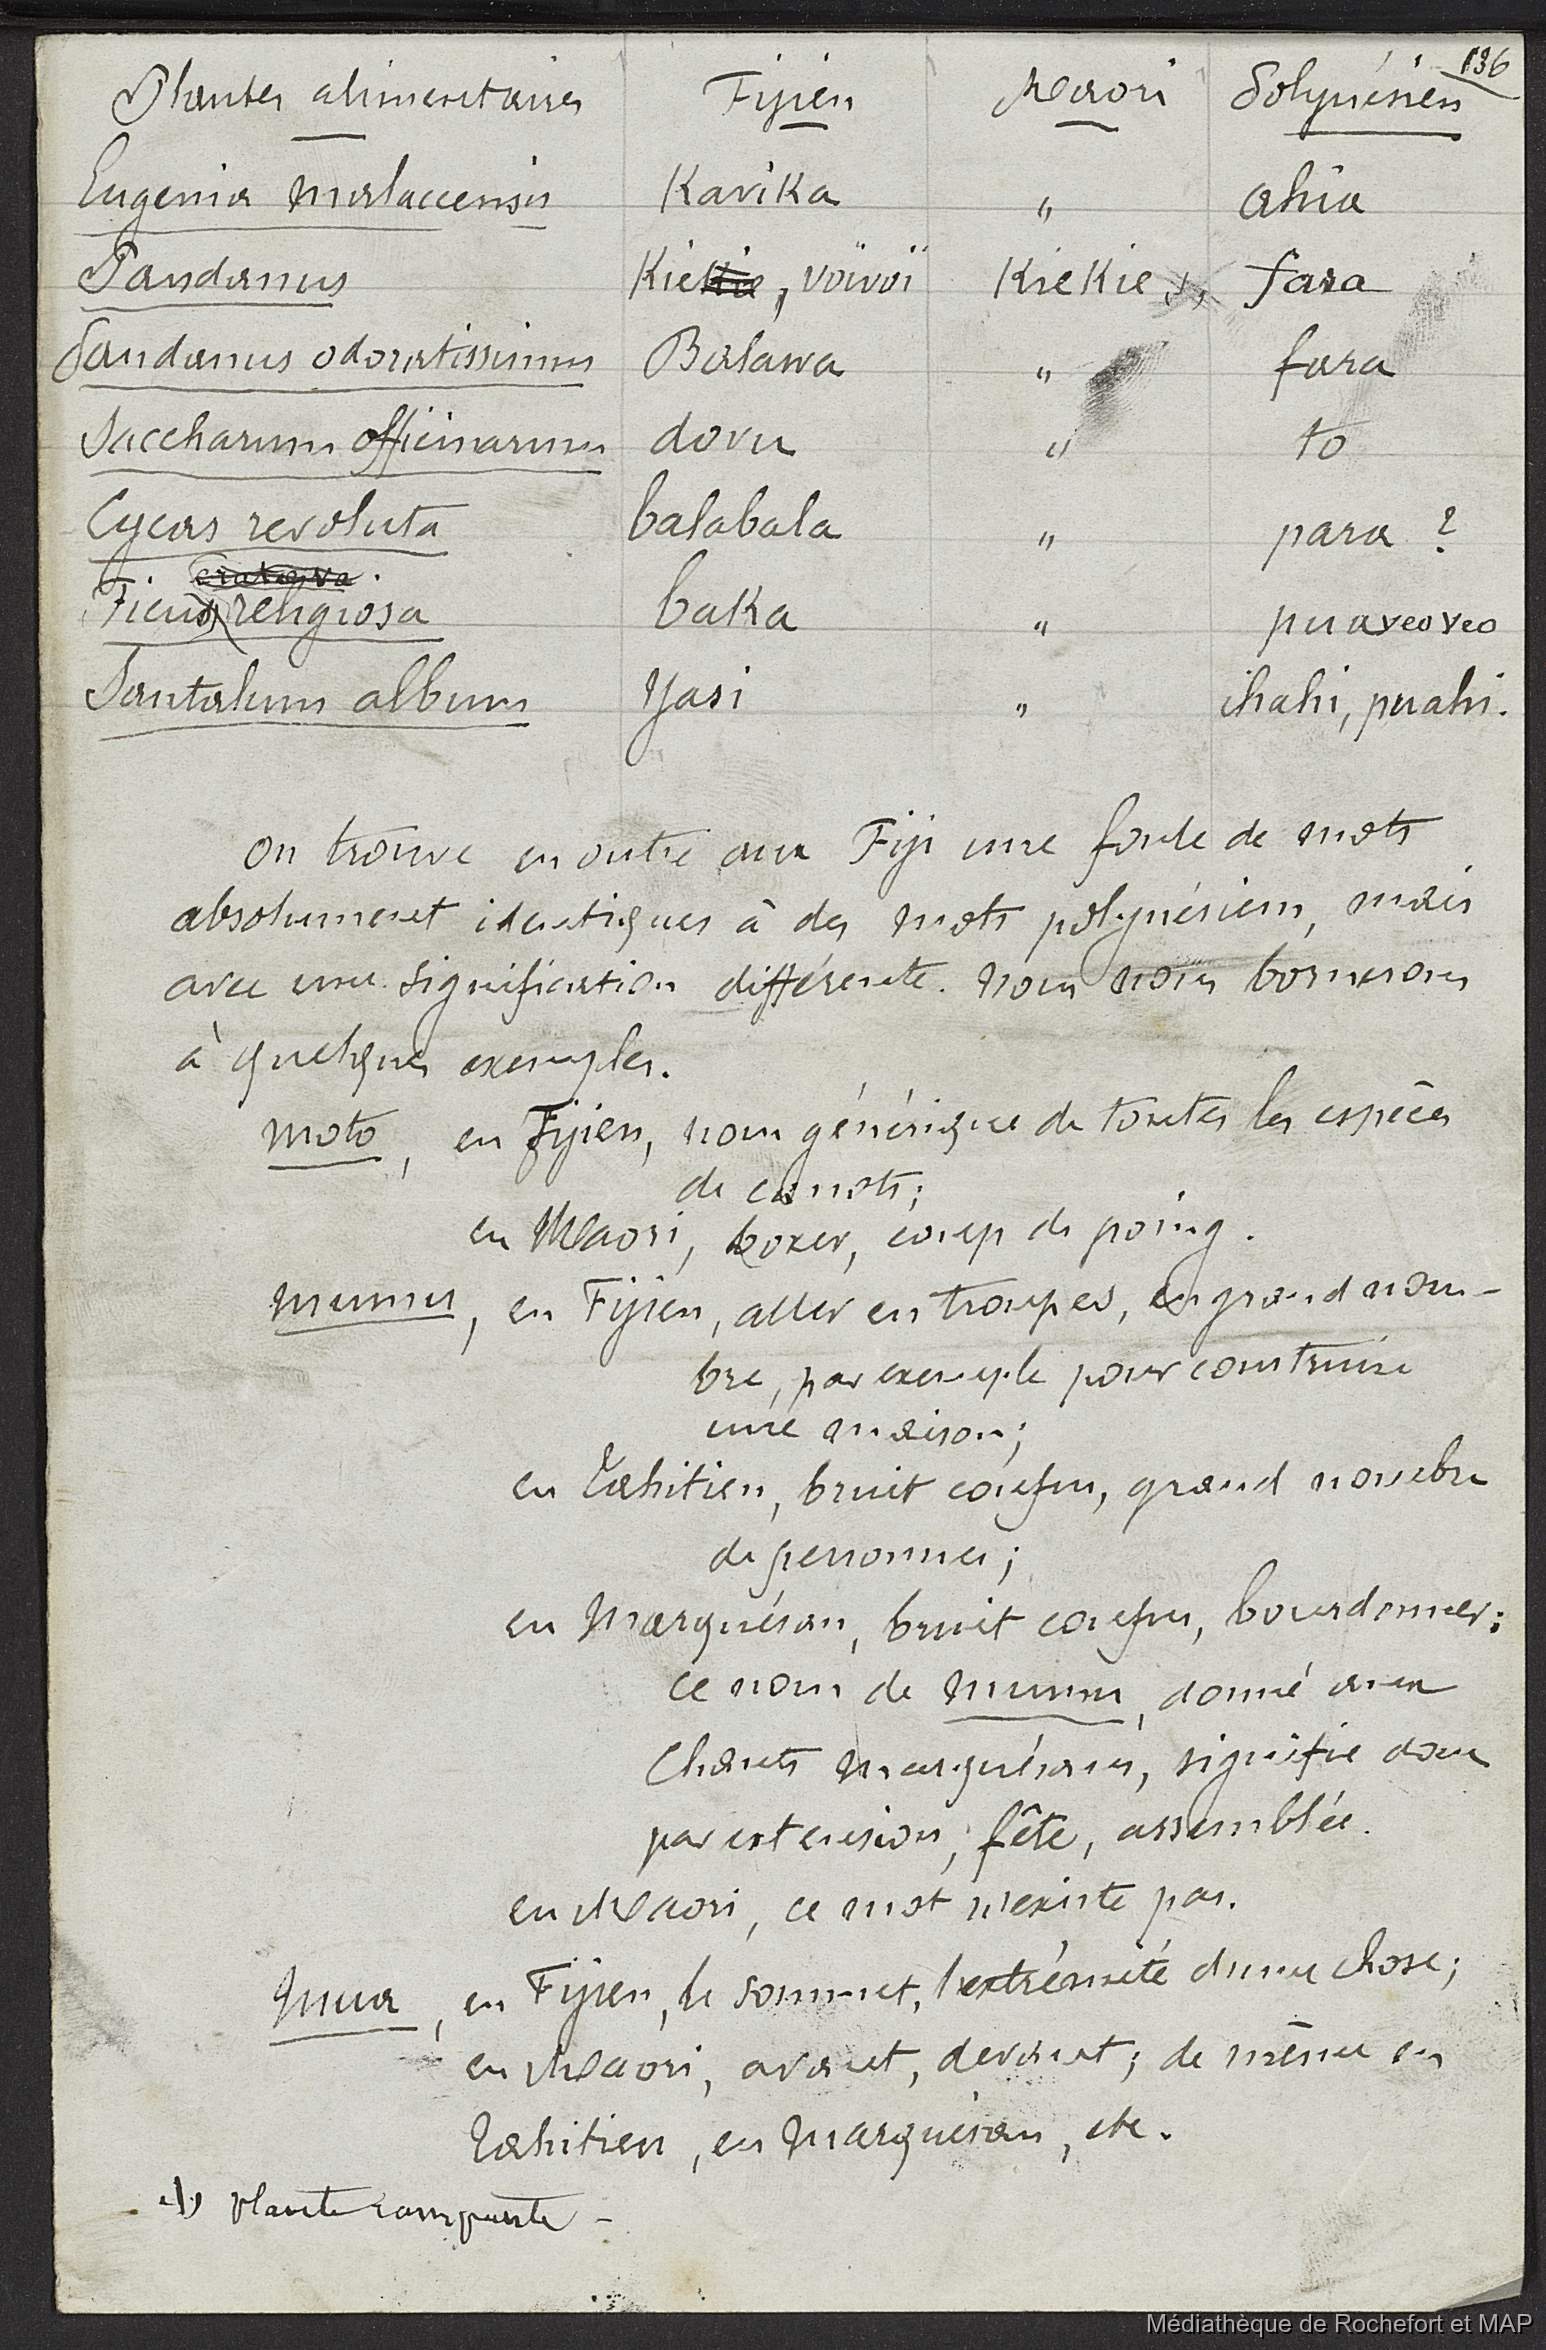 136
Plantes alimentaires Fijien Maori Polynésien
Eugenia malaccensis Kavika " ahia
Pandanus Kiekie, voïvoï KieKie (1), fara
Pandanus odoratissimus Balawa " fara
Saccharum officinarum dovu " to
Cycas revoluta balabala " para ?
Ficus religiosa baka " puaveoveo
Santalum album Yasi " ihahi, puahi.
On trouve en outre aux Fiji une foule de mots
absolument identiques à des mots polynésiens, mais
avec une signification différente. Nous nous bornerons
à quelques exemples.
Moto, en Fijien, nom générique de toutes les espèces
de canots;
en Maori, boxer, coup de poing.
Mumu, en Fijien, aller en troupes, en grand nom-
bre, par exemple pour construire
une maison;
en Tahitien, bruit confus, grand nombre
de personnes;
en Marquésan, bruit confus, bourdonner;
ce nom de Mumu, donné aux
Chants marquésans, signifie donc
par extension, fête, assemblée.
en Maori, ce mot n'existe pas.
Mua, en Fijien, le sommet, l'extrémité d'une chose;
en Maori, avant, devant; de même en
Tahitien, en Marquésan, etc.
(1) plante rampante -
Médiathèque de Rochefort et MAP